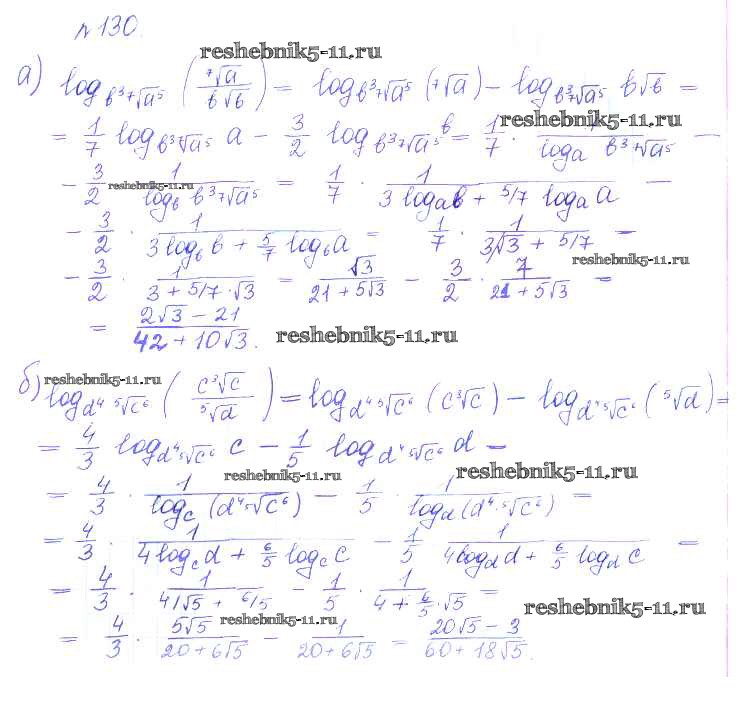 №130.
reshebnik5-11.ru
а) log_{b³ ⁷√a⁵} (⁷√a / b√b) = log_{b³ ⁷√a⁵} (⁷√a) − log_{b³ ⁷√a⁵} b√b =
= 1/7 log_{b³ ⁷√a⁵} a − 3/2 log_{b³ ⁷√a⁵} b = 1/7 · 1/(log_a b³ ⁷√a⁵) − reshebnik5-11.ru
− 3/2 · 1/(log_b b³ ⁷√a⁵) = 1/7 · 1/(3 log_a b + 5/7 log_a a) − reshebnik5-11.ru
− 3/2 · 1/(3 log_b b + 5/7 log_b a) = 1/7 · 1/(3/√3 + 5/7) −
reshebnik5-11.ru
− 3/2 · 1/(3 + 5/7 · √3) = √3/(21 + 5√3) − 3/2 · 7/(21 + 5√3) =
= (2√3 − 21)/(42 + 10√3). reshebnik5-11.ru
reshebnik5-11.ru
б) log_{d⁴ ⁵√c⁶} (c³√c / ⁵√d) = log_{d⁴ ⁵√c⁶} (c³√c) − log_{d⁴ ⁵√c⁶} (⁵√d) =
= 4/3 log_{d⁴ ⁵√c⁶} c − 1/5 log_{d⁴ ⁵√c⁶} d −
reshebnik5-11.ru reshebnik5-11.ru
= 4/3 · 1/(log_c (d⁴ ⁵√c⁶)) − 1/5 · 1/(log_d (d⁴ · ⁵√c⁶)) =
= 4/3 · 1/(4 log_c d + 6/5 log_c c) − 1/5 · 1/(4 log_d d + 6/5 log_d c) =
= 4/3 · 1/(4/√5 + 6/5) − 1/5 · 1/(4 + 6/5 · √5) =
reshebnik5-11.ru reshebnik5-11.ru
= 4/3 · 5√5/(20 + 6√5) − 1/(20 + 6√5) = (20√5 − 3)/(60 + 18√5).